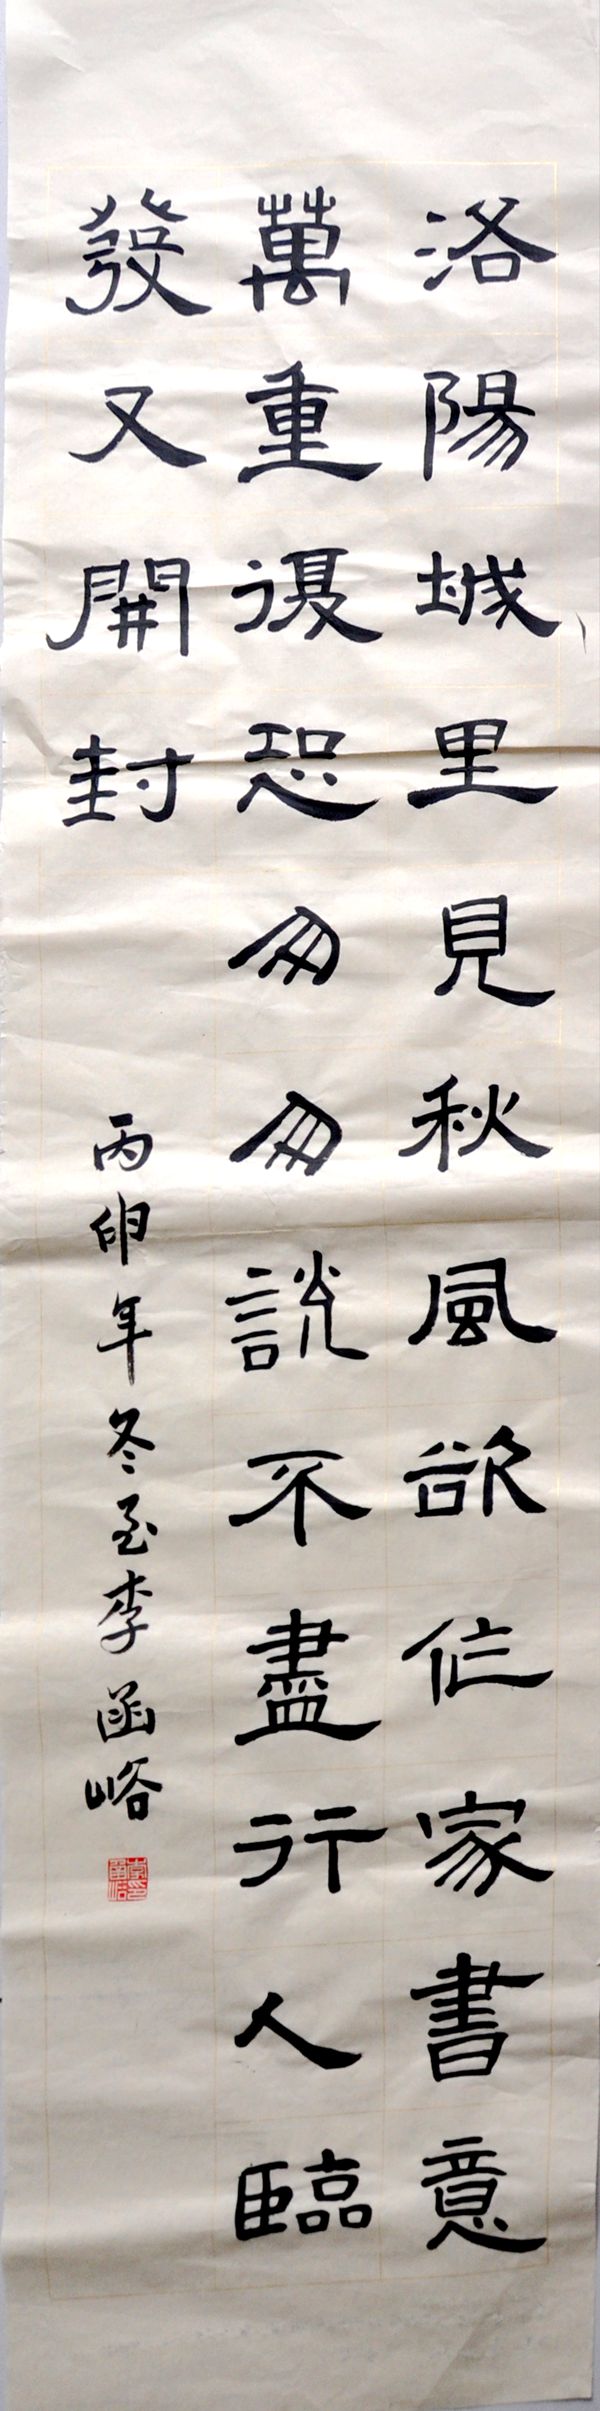 洛陽城里見秋風欲作家書意
萬重復恐匆匆説不盡行人臨
發又開封
丙卯年冬至李函峪